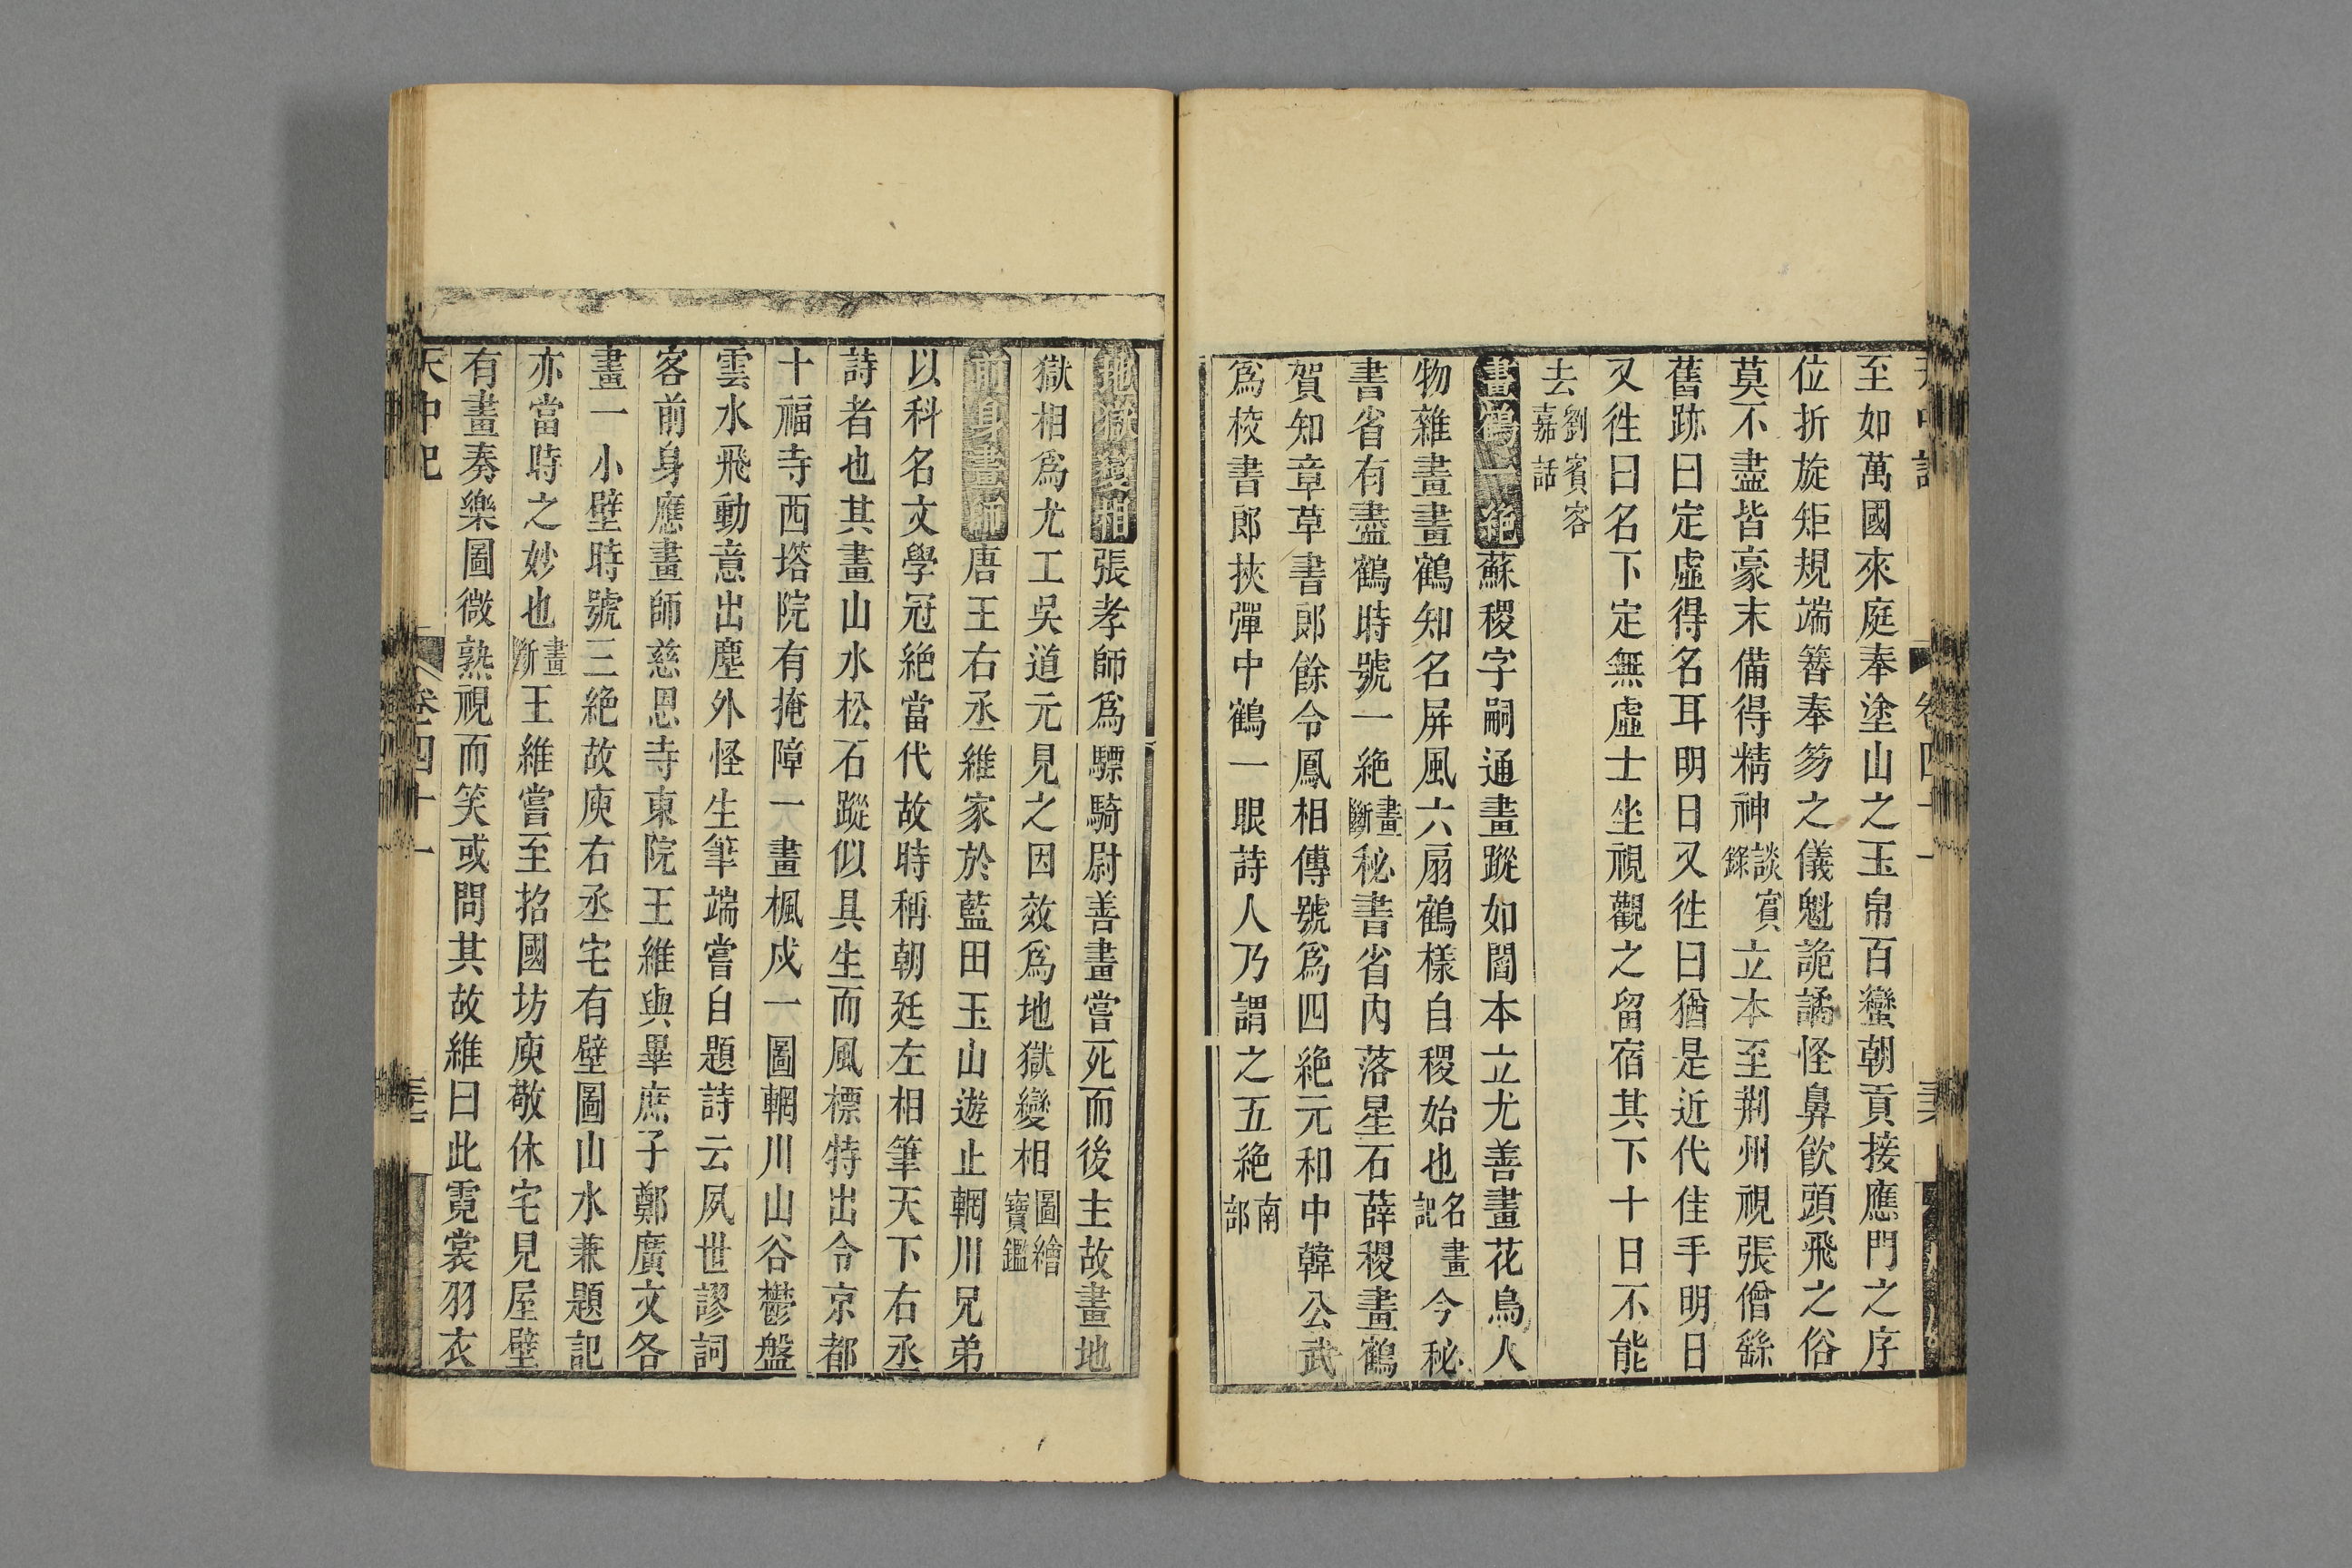 至如萬國來庭奉塗山之玉帛百蠻朝貢接應門之序
位折旋矩規端簪奉笏之儀魁詭譎怪鼻飲頭飛之俗
莫不盡皆豪末備得精神談賓錄立本至荆州視張僧繇
舊跡曰定虛得名耳明日又徃曰猶是近代佳手明日
又徃曰名下定無虛士坐視觀之留宿其下十日不能
去劉賓客嘉話
畫鶴一絶蘇稷字嗣通畫蹤如閻本立尤善畫花鳥人
物雜畫畫鶴知名屏風六扇鶴樣自稷始也名畫記今秘
書省有盡鶴時號一絶畫斷秘書省内落星石薛稷畫鶴
賀知章草書郎餘令鳳相傳號爲四絶元和中韓公武
爲校書郎挾彈中鶴一眼詩人乃謂之五絶南部
地獄變相張孝師爲驃騎尉善畫嘗死而後主故畫地
獄相爲尤工吳道元見之因效爲地獄變相圖繪寶鑑
前身畫師唐王右丞維家於藍田玉山遊止輞川兄弟
以科名文學冠絶當代故時稱朝廷左相筆天下右丞
詩者也其畫山水松石蹤似具生而風標特出令京都
十福寺西塔院有掩障一畫楓戍一圖輞川山谷鬱盤
雲水飛動意出塵外怪生筆端嘗自題詩云夙世謬詞
客前身應畫師慈恩寺東院王維與畢庶子鄭廣文各
畫一小壁時號三絶故庾右丞宅有壁圖山水兼題記
亦當時之妙也畫斷王維嘗至招國坊庾敬休宅見屋壁
有畫奏樂圖微熟視而笑或問其故維曰此霓裳羽衣
天中記
卷四十一